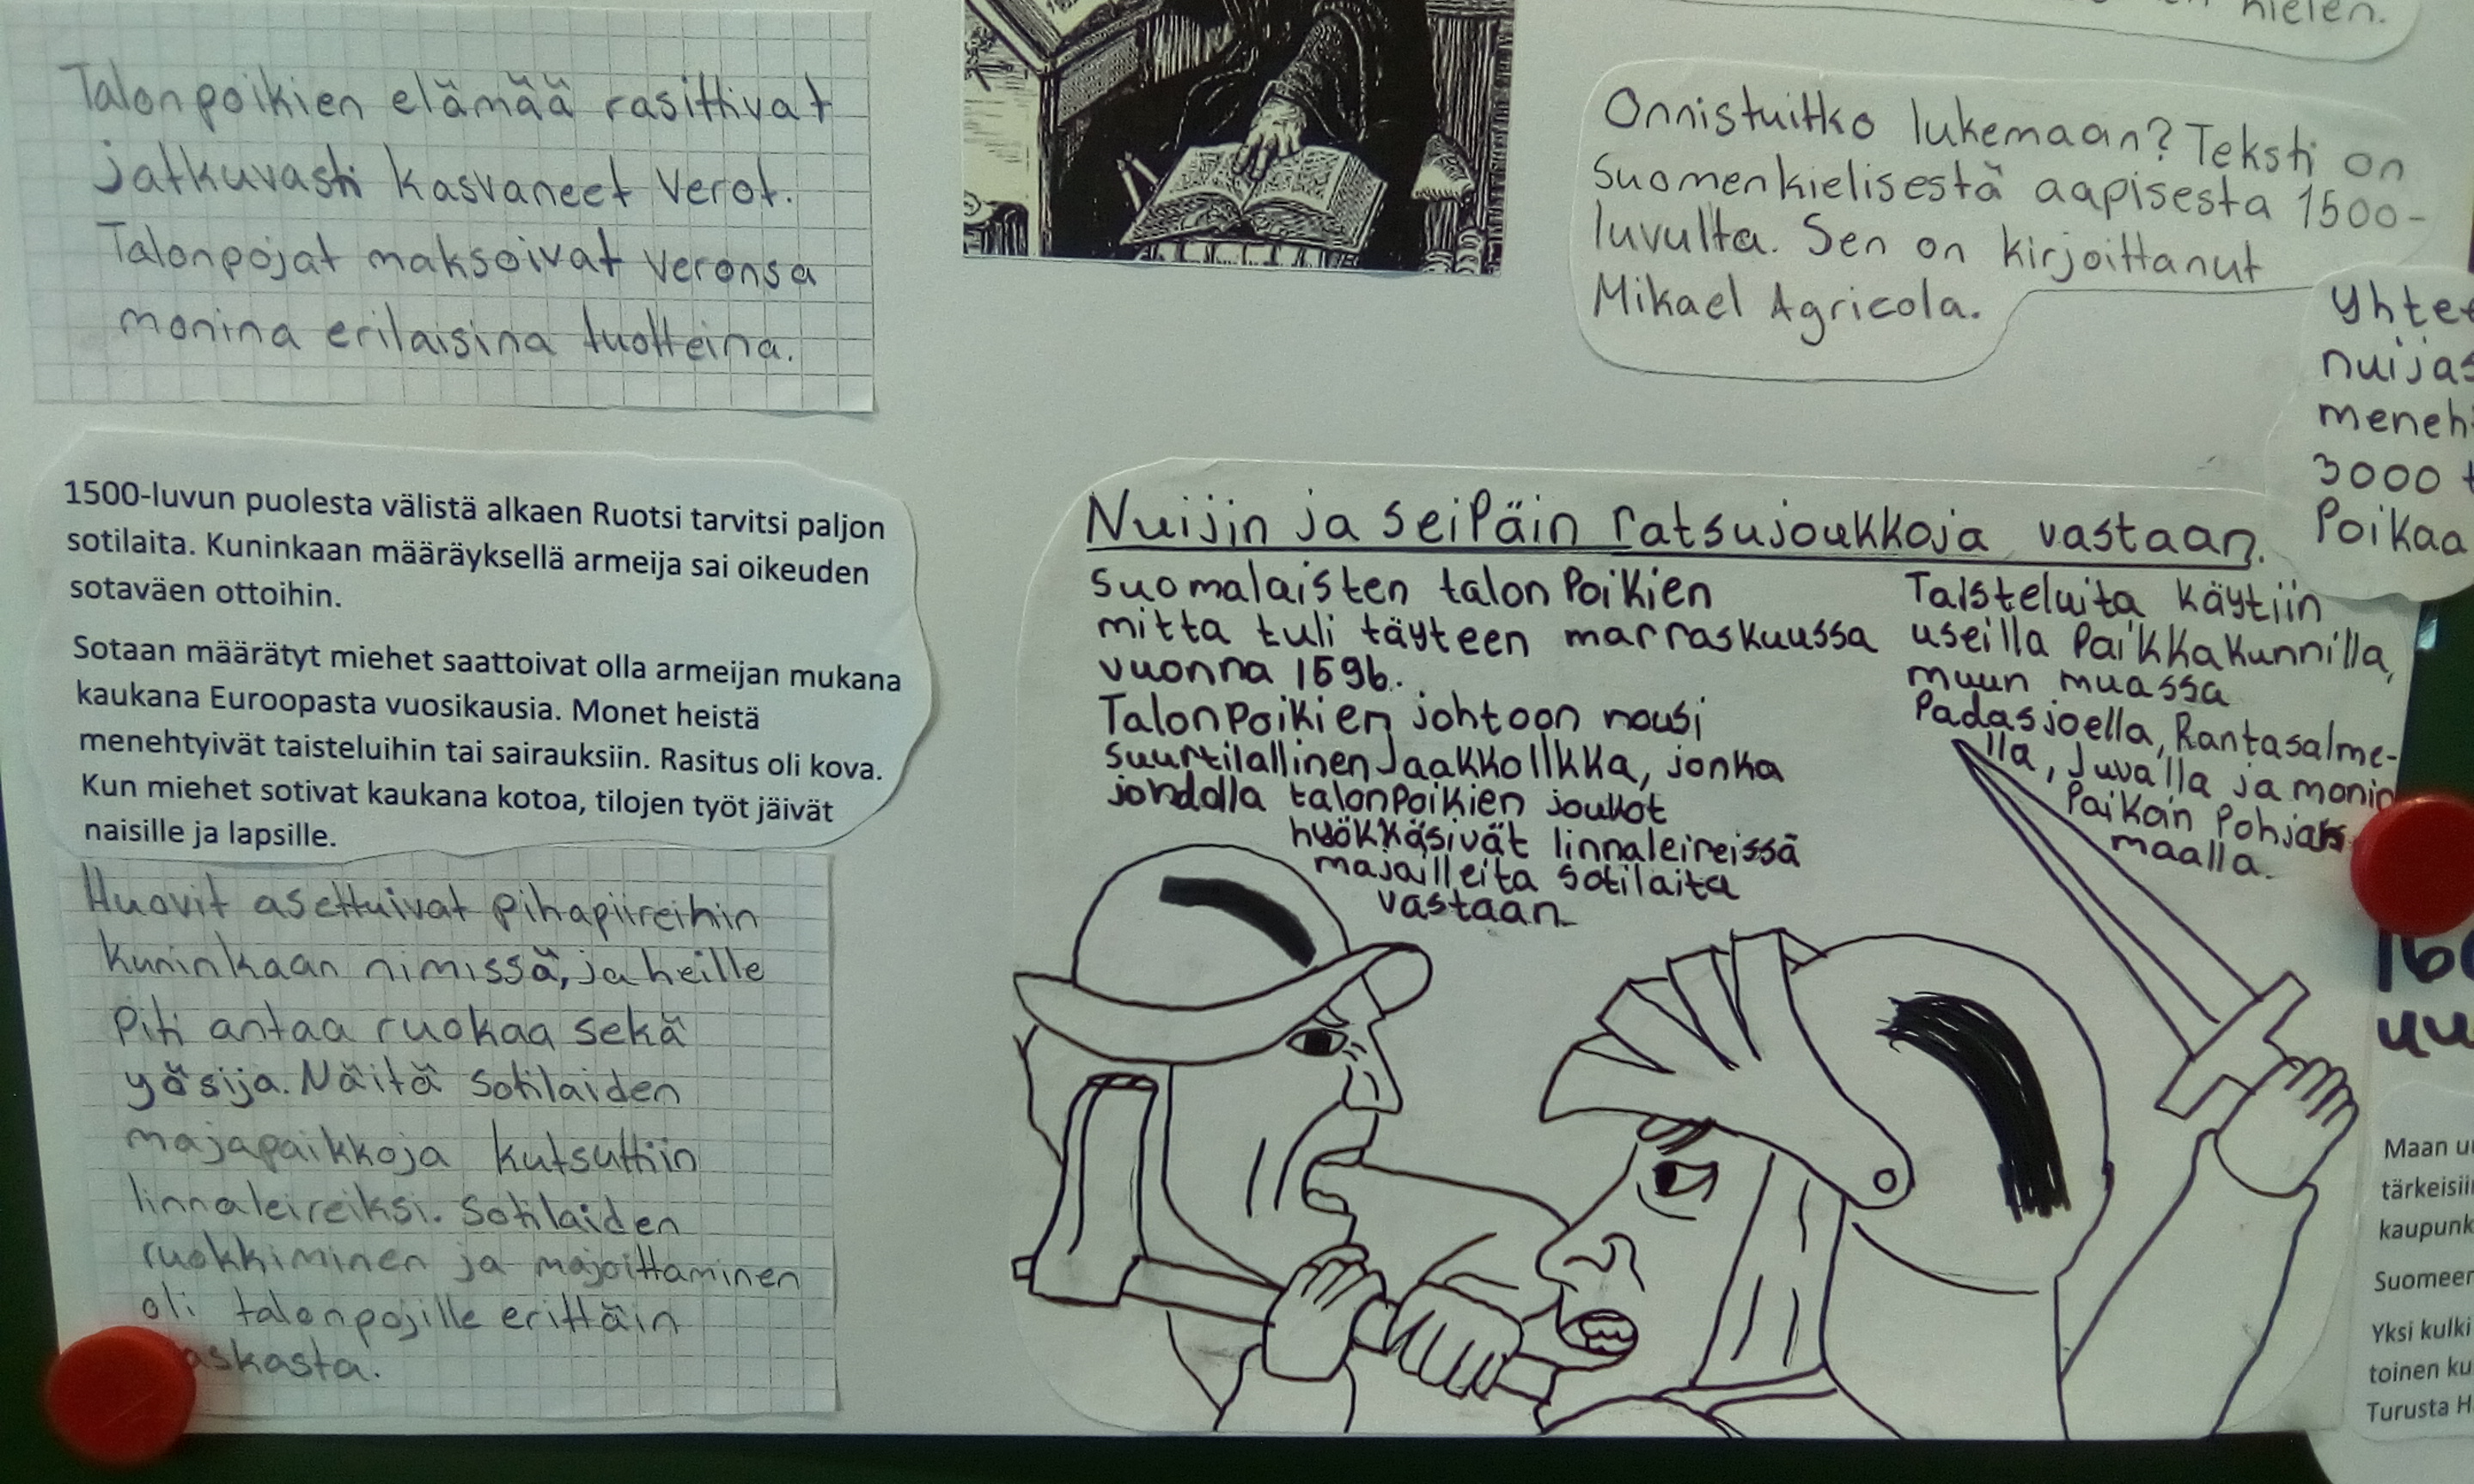 Talonpoikien elämää rasittivat
jatkuvasti kasvaneet verot.
Talonpojat maksoivat veronsa
monina erilaisina tuotteina.
1500-luvun puolesta välistä alkaen Ruotsi tarvitsi paljon
sotilaita. Kuninkaan määräyksellä armeija sai oikeuden
sotaväen ottoihin.
Sotaan määrätyt miehet saattoivat olla armeijan mukana
kaukana Euroopasta vuosikausia. Monet heistä
menehtyivät taisteluihin tai sairauksiin. Rasitus oli kova.
Kun miehet sotivat kaukana kotoa, tilojen työt jäivät
naisille ja lapsille.
Huovit asettuivat pihapiireihin
kuninkaan nimissä, ja heille
piti antaa ruokaa sekä
yösija. Näitä sotilaiden
majapaikkoja kutsuttiin
linnaleireiksi. Sotilaiden
ruokkiminen ja majoittaminen
oli talonpojille erittäin
askasta.
hielen.
Onnistuitko lukemaan? Teksti on
Suomenkielisestä aapisesta 1500-
luvulta. Sen on kirjoittanut
Mikael Agricola.
Yhte
nuijas
meneh
3000 t
Poikaa
Nuijin ja seipäin ratsujoukkoja vastaan.
Suomalaisten talonpoikien
mitta tuli täyteen marraskuussa
vuonna 1596.
Talonpoikien johtoon nousi
suurtilallinen Jaakko Ilkka, jonka
johdolla talonpoikien joukot
hyökkäsivät linnaleireissä
majailleita sotilaita
vastaan
Taisteluita käytiin
useilla paikkakunnilla,
muun muassa
Padasjoella, Rantasalme-
lla, Juvalla ja monin
paikoin pohjan
maalla.
160
uu
Maan u
tärkeisiin
kaupunk
Suomeen
Yksi kulki
toinen ku
Turusta H